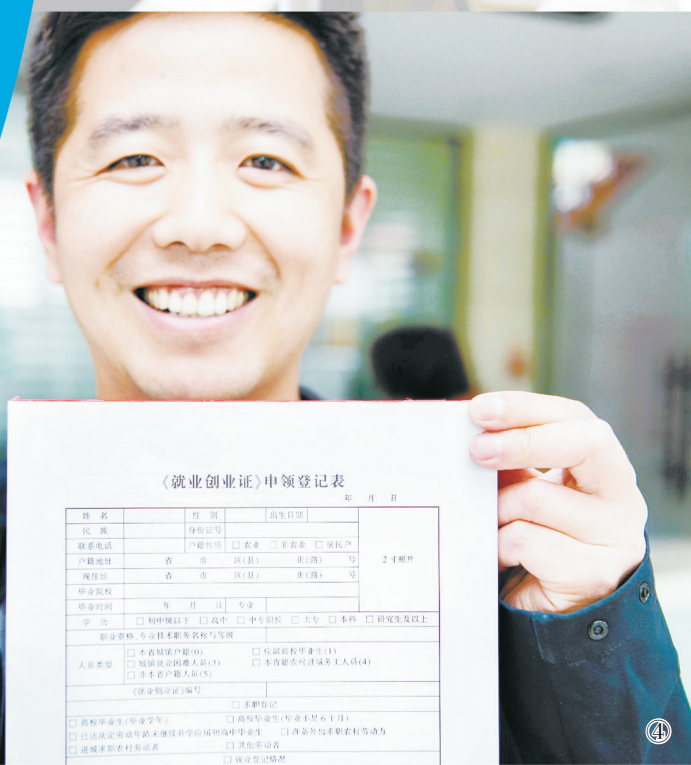 《就业创业证》申领登记表
年 月 日
姓 名 性 别 出生日期
民 族 身份证号
联系电话 户籍性质 □ 农业 □ 非农业 □ 居民户
2 寸照片
户籍地址 省 市 区(县) 街(路) 号
现住址 省 市 区(县) 街(路) 号
毕业院校
毕业时间 年 月 日 专业
学 历 □ 初中级以下 □ 高中 □ 中专职校 □ 大专 □ 本科 □ 研究生及以上
职业资格、专业技术职务名称与等级
人员类型
□ 本省城镇户籍(0) □ 应届高校毕业生(1)
□ 城镇就业困难人员(3) □ 本省籍农村进城务工人员(4)
□ 非本省户籍人员(5)
《就业创业证》编号
□ 求职登记
□ 高校毕业生(毕业学年) □ 高校毕业生(毕业不足6个月)
□ 已达法定劳动年龄未继续升学应届初高中毕业生 □ 准备外出求职农村劳动力
□ 进城求职农村劳动者 □ 其他劳动者
□ 就业登记情况
④